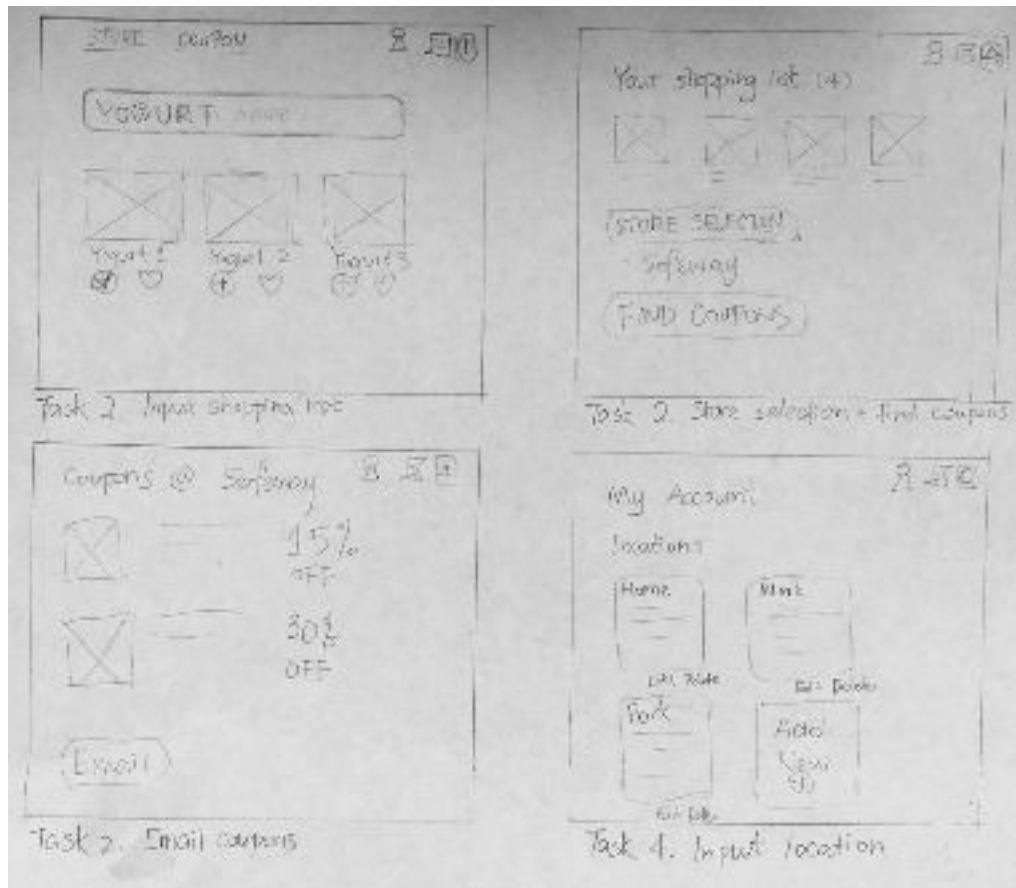 STORE COUPON
YOGURT
Yogurt 1
Yogurt 2
Yogurt 3
Task 1. Input shopping list
Your shopping list (4)
STORE SELECTION
Safeway
FIND COUPONS
Task 2. Store selection + find coupons
Coupons @ Safeway
15%
OFF
30%
OFF
Email
Task 3. Email coupons
My Account
Locations
Home
Work
Edit Delete
Edit Delete
Add
New
Edit Delete
Task 4. Input location